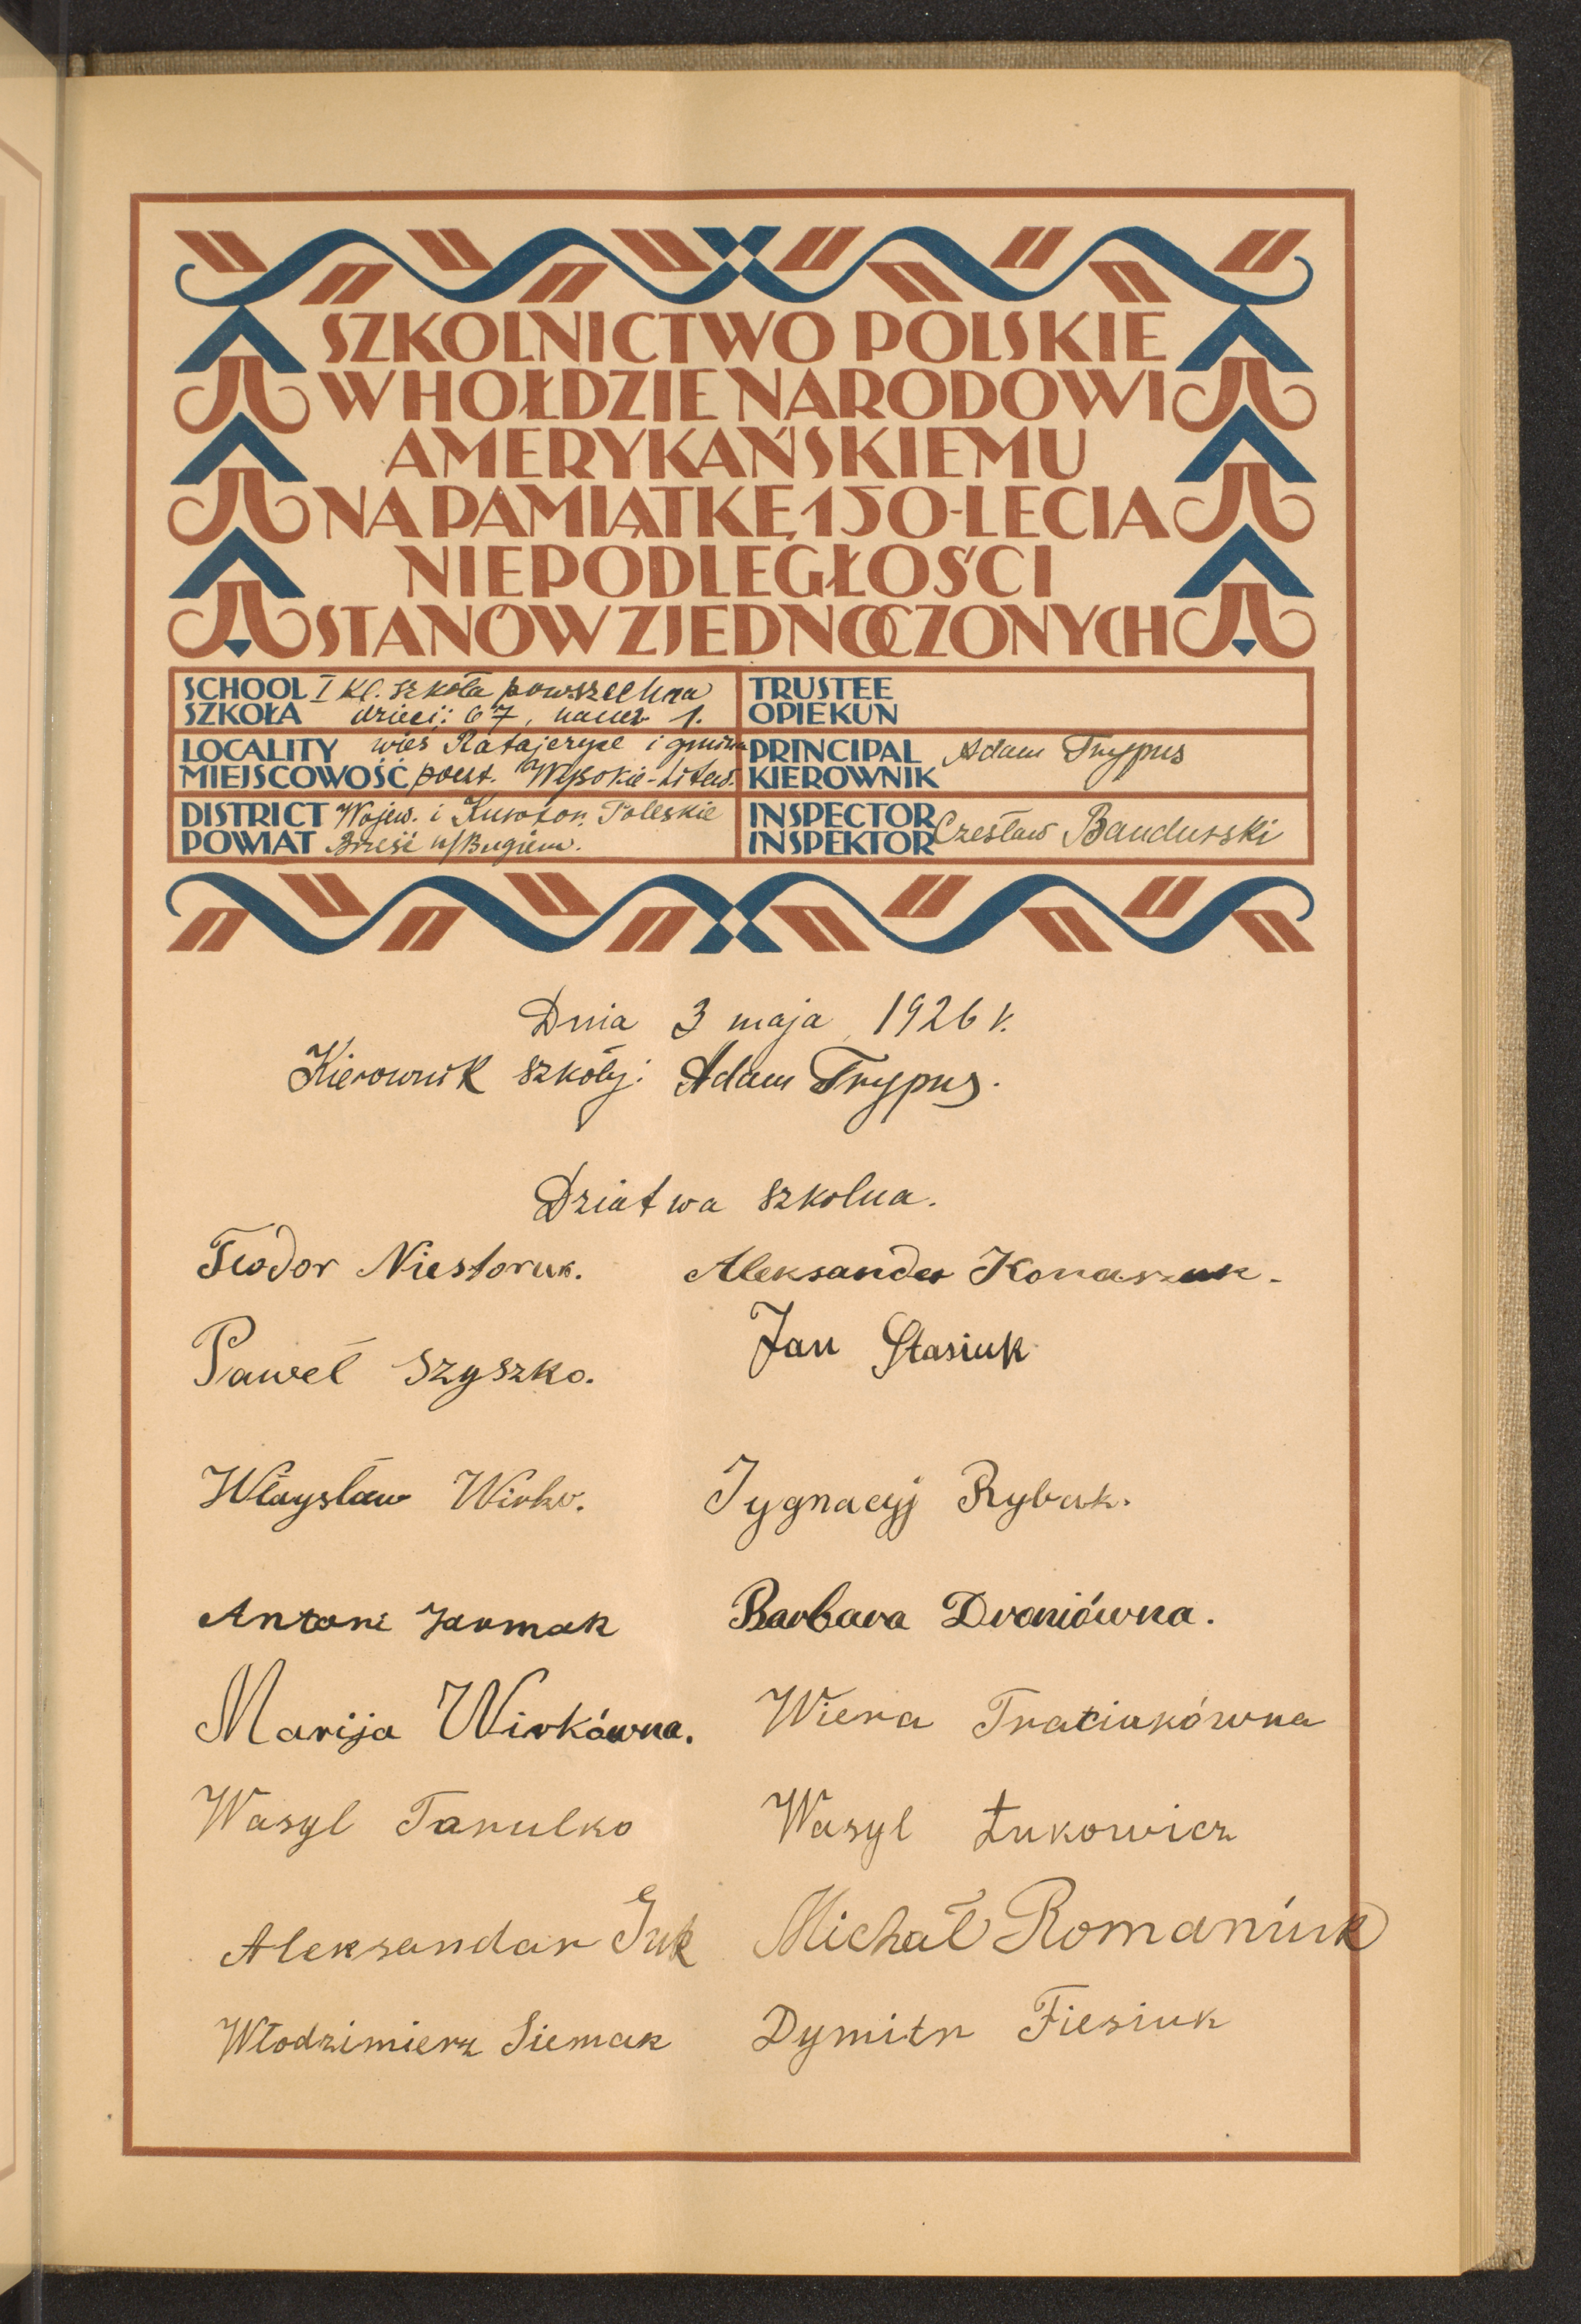 SZKOLNICTWO POLSKIE
W HOŁDZIE NARODOWI
AMERYKAŃSKIEMU
NA PAMIĄTKĘ 150-LECIA
NIEPODLEGŁOŚCI
STANÓW ZJEDNOCZONYCH
SCHOOL I kl. szkoła powszechna
SZKOŁA dzieci: 67, naucz 1.
TRUSTEE
OPIEKUN
LOCALITY wieś Ratajczyce i gmina
MIEJSCOWOŚĆ poczt. Wysokie-Litew.
PRINCIPAL Adam Trypus
KIEROWNIK
DISTRICT Wojew. i Kurator. Poleskie
POWIAT Brześć n/Bugiem.
INSPECTOR Czesław Bandurski
INSPEKTOR
Dnia 3 maja 1926 r.
Kierownik szkoły: Adam Trypus.
Dziatwa szkolna.
Teodor Niestoruk. Aleksander Konaszuk.
Paweł Szyszko. Jan Stasiuk
Włayslaw Wirko. Jygnacyj Rybak.
Antoni Jarmak Barbara Droniówna.
Marija Wirkówna. Wiera Traciukówna
Wasyl Tarulko Wasyl Łukowicz
Aleksandar Guk Michał Romaniuk
Włodzimierz Siemak Dymitr Fiesiuk